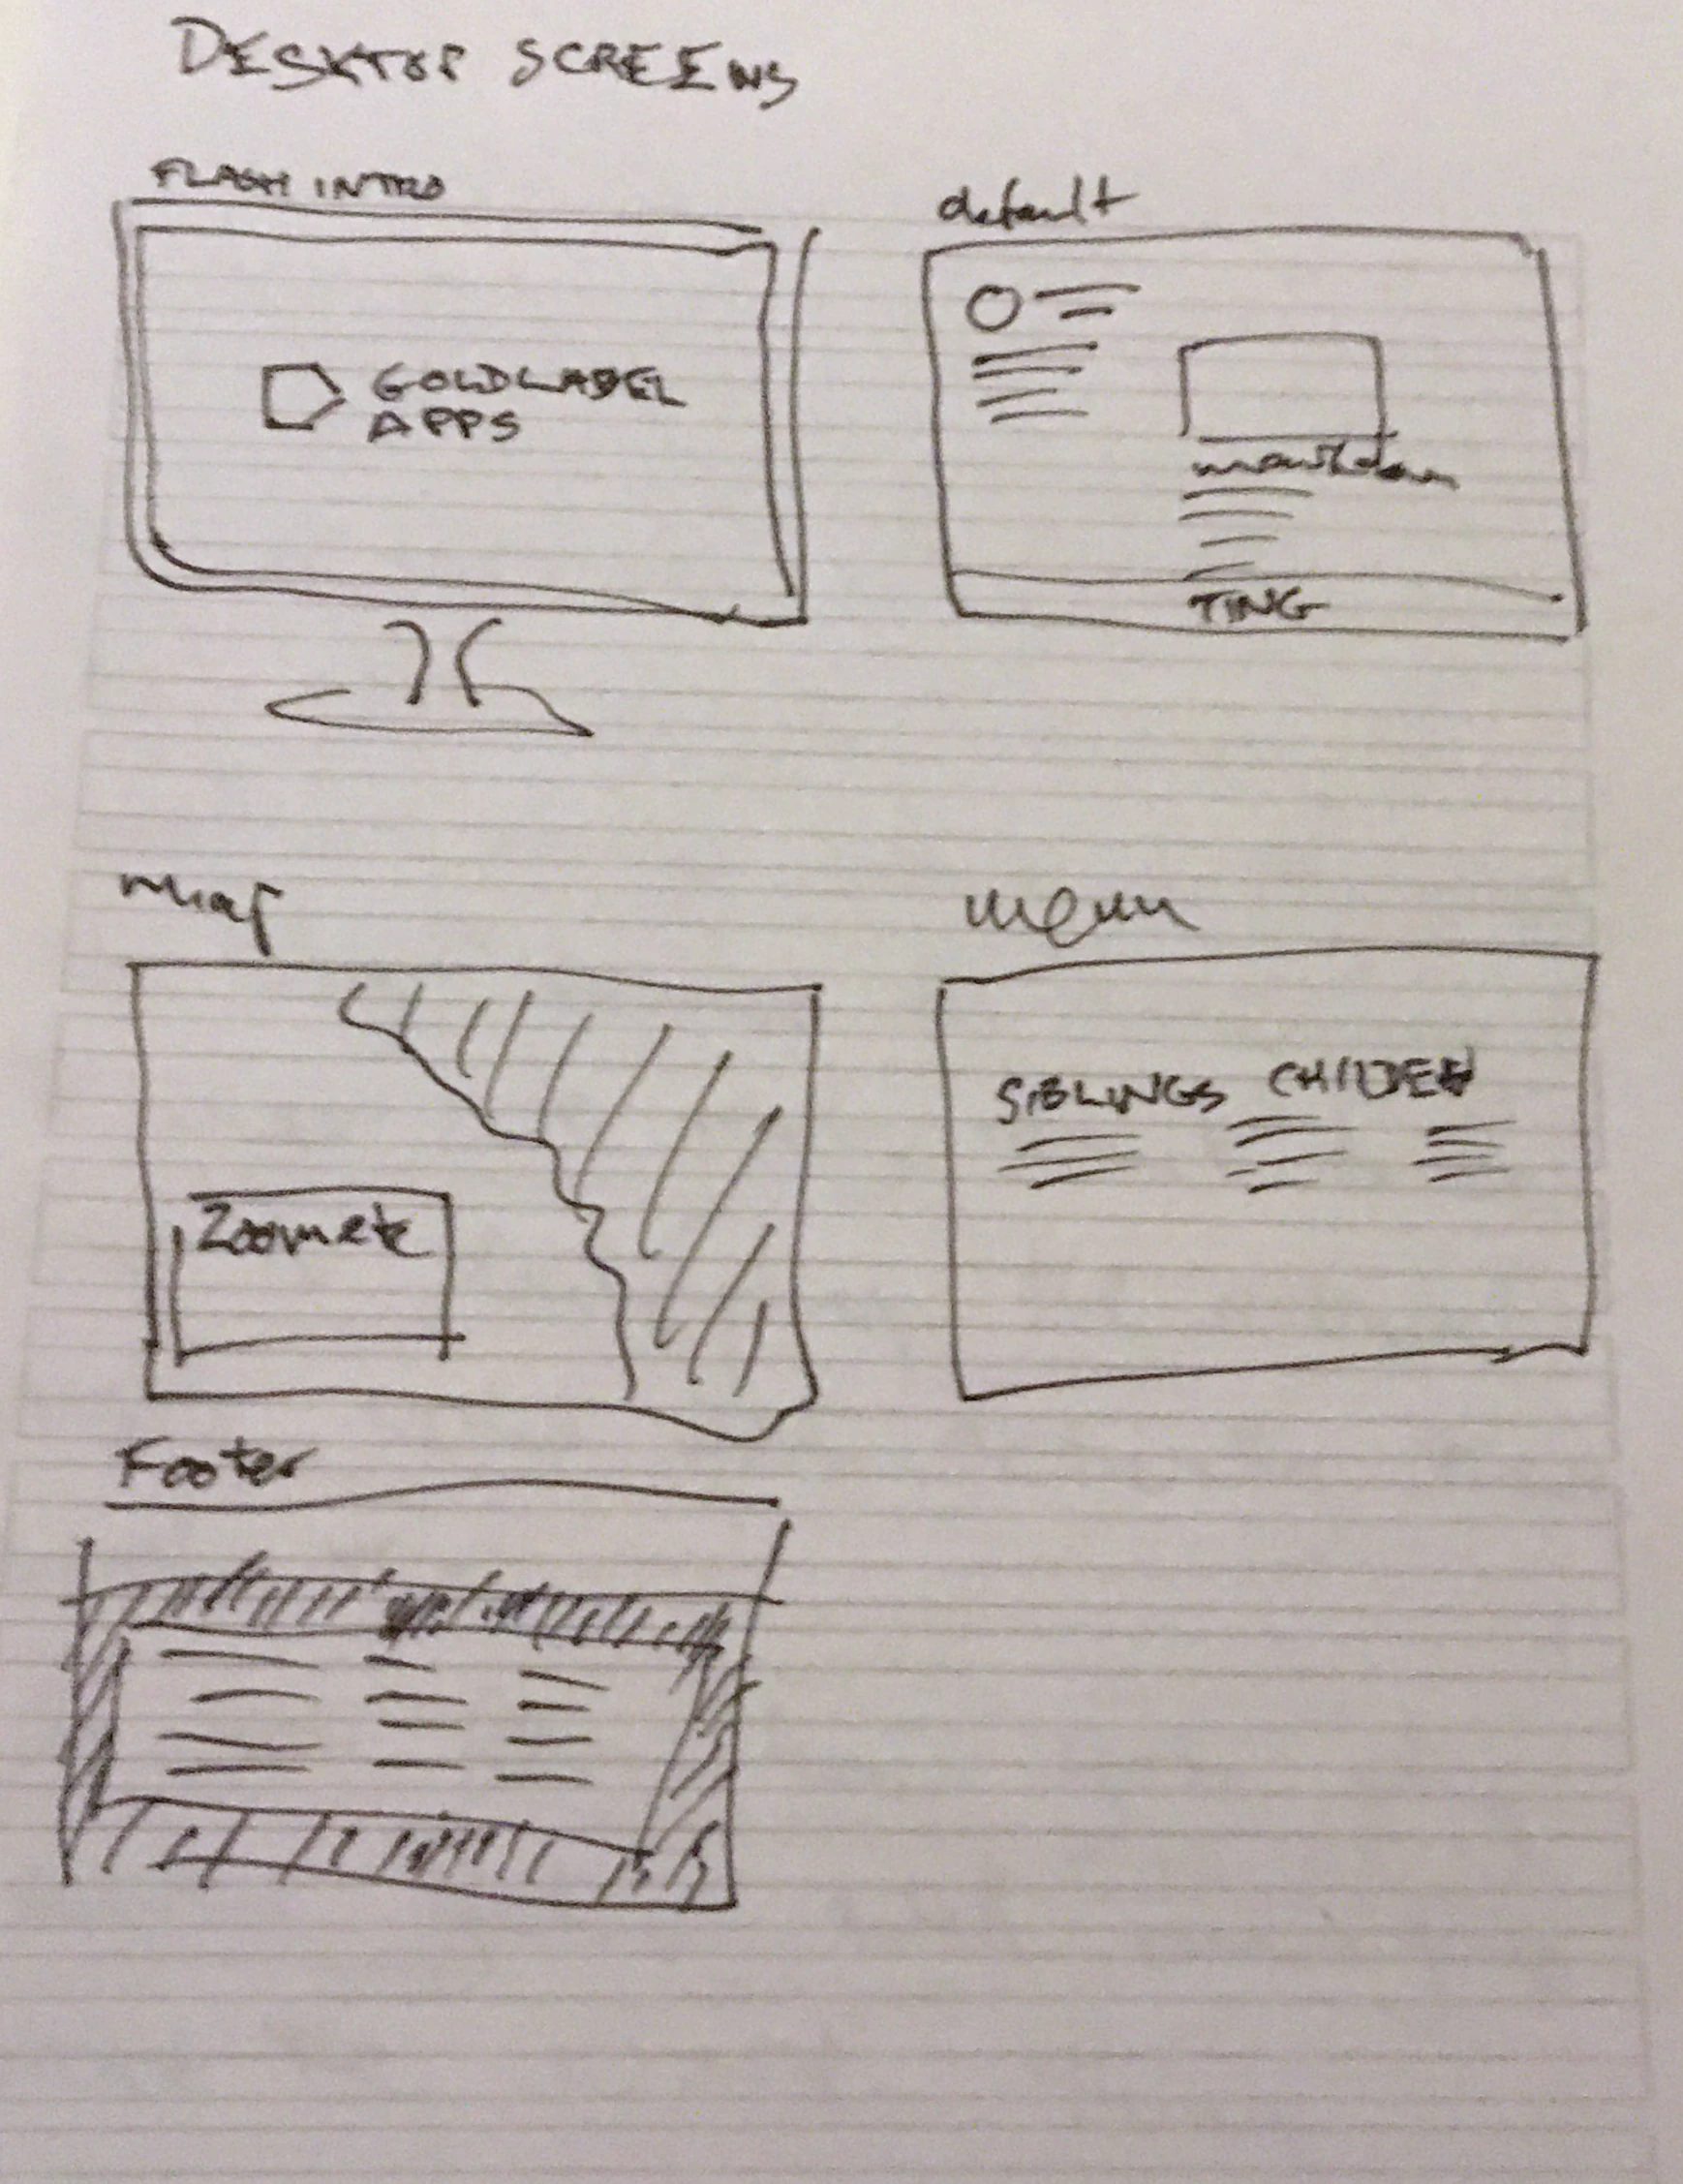 DESKTOP SCREENS
FLASH INTRO
GOLDLABEL
APPS
default
markdown
TING
map
Zoom etc
menu
SIBLINGS CHILDEN
Footer